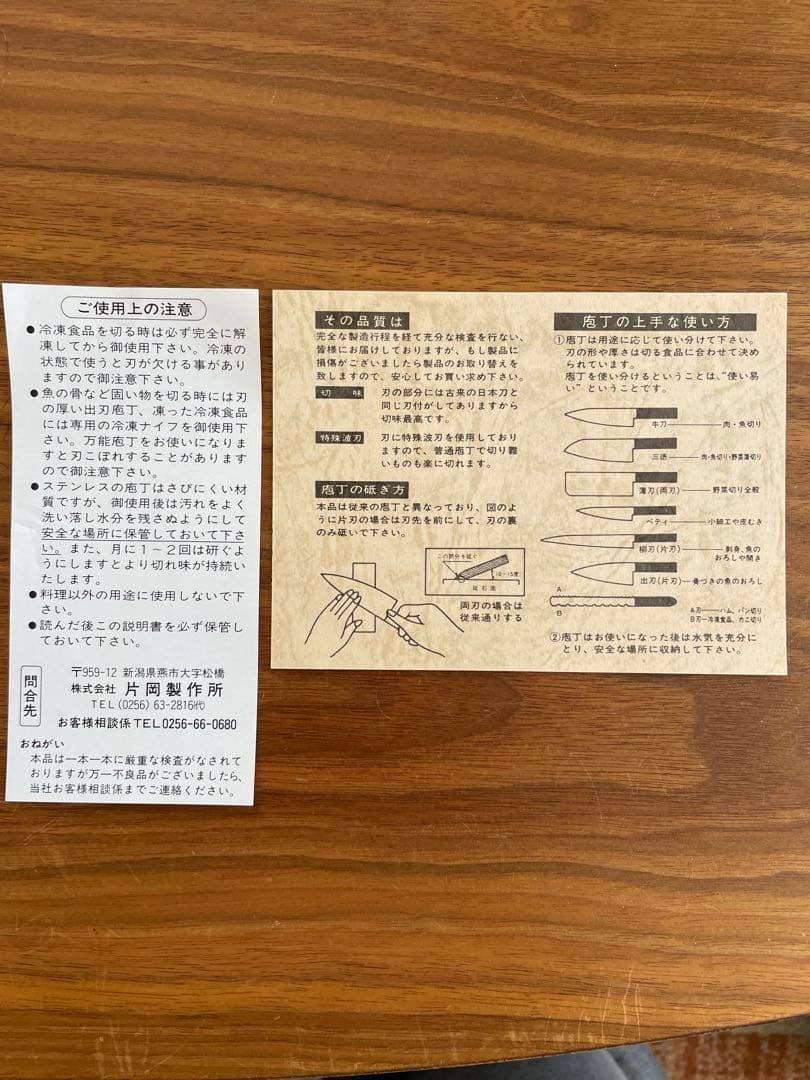 ご使用上の注意
●冷凍食品を切る時は必ず完全に解
凍してから御使用下さい。冷凍の
状態で使うと刃が欠ける事があり
ますので御注意下さい。
●魚の骨など固い物を切る時には刃
の厚い出刃庖丁、凍った冷凍食品
には専用の冷凍ナイフを御使用下
さい。万能庖丁をお使いになりま
すと刃こぼれすることがあります
ので御注意下さい。
●ステンレスの庖丁はさびにくい材
質ですが、御使用後は汚れをよく
洗い落し水分を残さぬようにして
安全な場所に保管しておいて下さ
い。また、月に1~2回は研ぐよ
うにしますとより切れ味が持続い
たします。
●料理以外の用途に使用しないで下
さい。
●読んだ後この説明書を必ず保管し
ておいて下さい。
問合先
〒959-12 新潟県燕市大字松橋
株式会社 片岡製作所
TEL(0256)63-2816代
お客様相談係TEL0256-66-0680
おねがい
本品は一本一本に厳重な検査がなされて
おりますが万一不良品がございましたら、
当社お客様相談係までご連絡ください。
その品質は
完全な製造行程を経て充分な検査を行ない、
皆様にお届けしておりますが、もし製品に
損傷がございましたら製品のお取り替えを
致しますので、安心してお買い求め下さい。
切味
刃の部分には古来の日本刀と
同じ刃付がしてありますから
切味最高です。
特殊波刃
刃に特殊波刃を使用しており
ますので、普通庖丁で切り難
いものも楽に切れます。
庖丁の砥ぎ方
本品は従来の庖丁と異なっており、図のよ
うに片刃の場合は刃先を前にして、刃の裏
のみ砥いで下さい。
この部分を砥ぐ
10~15度
砥石面
両刃の場合は
従来通りする
庖丁の上手な使い方
①庖丁は用途に応じて使い分けて下さい。
刃の形や厚さは切る食品に合わせて決め
られています。
庖丁を使い分けるということは、“使い易
い”ということです。
牛刀 肉・魚切り
三徳 肉・魚切り・野菜薄切り
薄刃(両刃) 野菜切り全般
ペティ 小細工や皮むき
柳刃(片刃) 刺身、魚の
おろしや開き
出刃(片刃) 骨づきの魚のおろし
A
B
A刃 ハム、パン切り
B刃 冷凍食品、カニ切り
②庖丁はお使いになった後は水気を充分に
とり、安全な場所に収納して下さい。